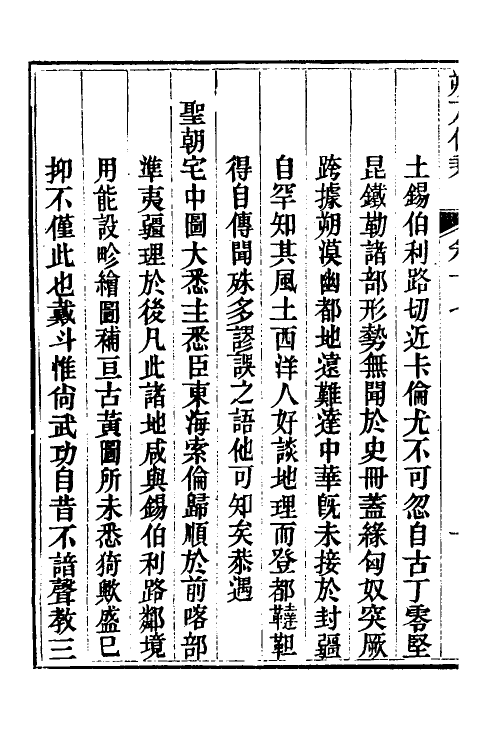 土錫伯利路切近卡倫尤不可忽自古丁零堅
昆鐵勒諸部形勢無聞於史冊蓋緣匈奴突厥
跨據朔漠幽都地遠難達中華旣未接於封疆
自罕知其風土西洋人好談地理而登都韃靼
得自傳聞殊多謬誤之語他可知矣恭遇
聖朝宅中圖大悉主悉臣東海索倫歸順於前喀部
準夷疆理於後凡此諸地咸與錫伯利路鄰境
用能設畛繪圖補亘古黃圖所未悉猗歟盛巳
抑不僅此也戴斗惟尙武功自昔不諳聲教三